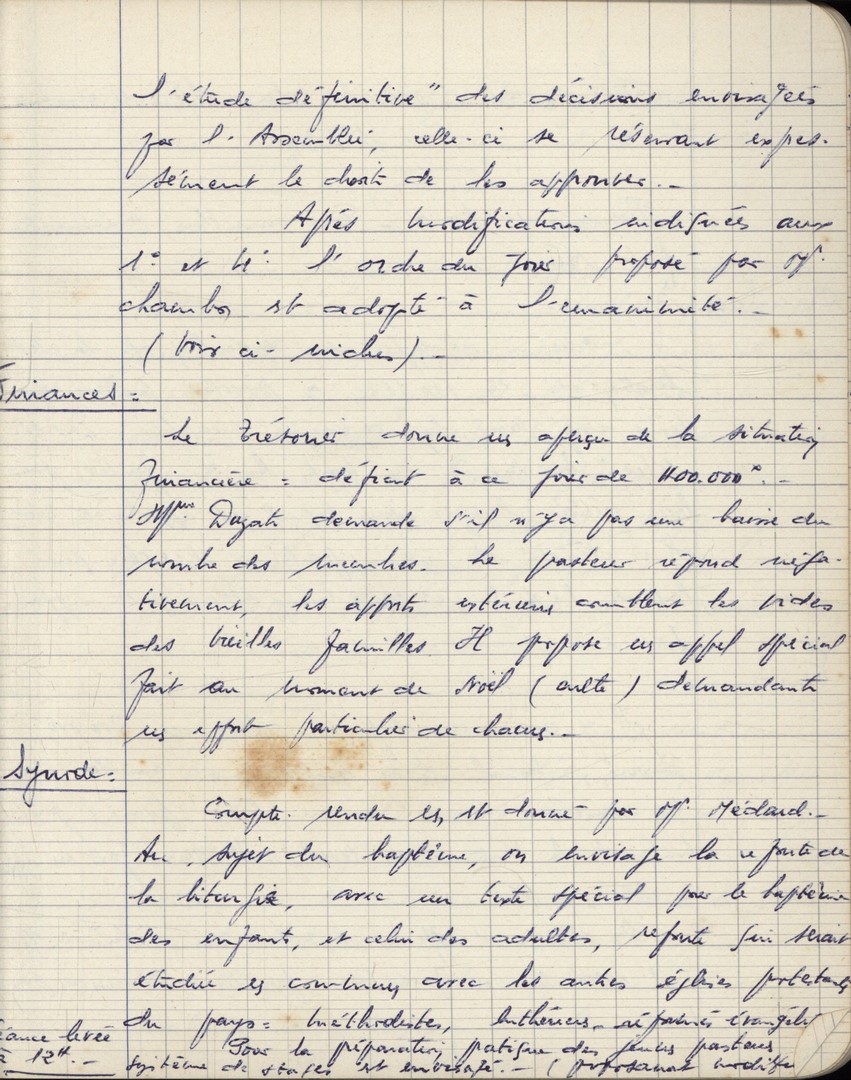 l'étude définitive" des décisions envisagées
par l'Assemblée, celle-ci se réservant expres-
sément le droit de les approuver._
Après modifications indiquées aux
1° et 4° l'ordre du jour proposé par Mr.
Chambon est adopté à l'unanimité._
(Voir ci-inclus)._
Finances=
Le Trésorier donne un aperçu de la situation
financière = déficit à ce jour de 400.000
Mme Dugat demande s'il n'y a pas une baisse du
nombre des membres. Le pasteur répond néga-
tivement, les apports extérieurs comblent les vides
des vieilles familles. Il propose un appel spécial
fait au moment de Noël (culte) demandant
un effort particulier de chacun._
Synode=
Compte-rendu en est donné par Mr. Médard._
Au sujet du baptême, on envisage la refonte de
la liturgie, avec un texte spécial pour le baptême
des enfants, et celui des adultes, refonte qui serait
étudiée en commun avec les autres églises protestantes
du pays= méthodistes, luthériens, réformés évangéli
Pour la préparation pratique des jeunes pasteurs
système de stages est envisagé._ (proposanat
éance levée
à 12H._